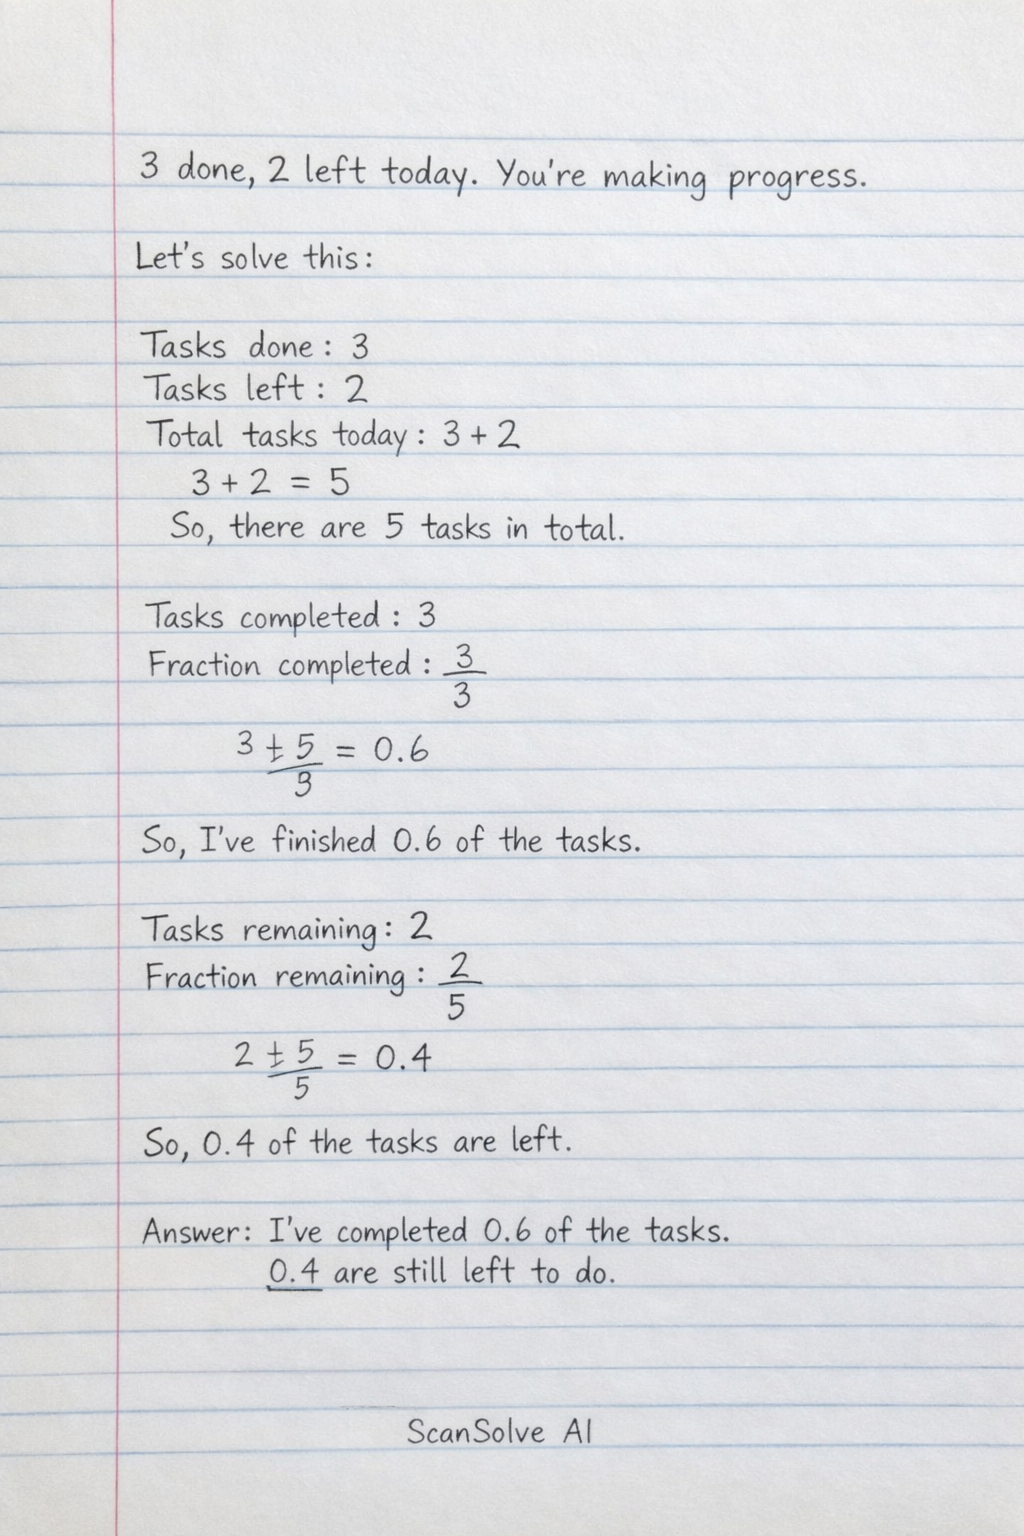 3 done, 2 left today. You're making progress.
Let's solve this:
Tasks done: 3
Tasks left: 2
Total tasks today: 3 + 2
3 + 2 = 5
So, there are 5 tasks in total.
Tasks completed: 3
Fraction completed: 3/3
3 ± 5/3 = 0.6
So, I've finished 0.6 of the tasks.
Tasks remaining: 2
Fraction remaining: 2/5
2 ± 5/5 = 0.4
So, 0.4 of the tasks are left.
Answer: I've completed 0.6 of the tasks.
0.4 are still left to do.
ScanSolve AI